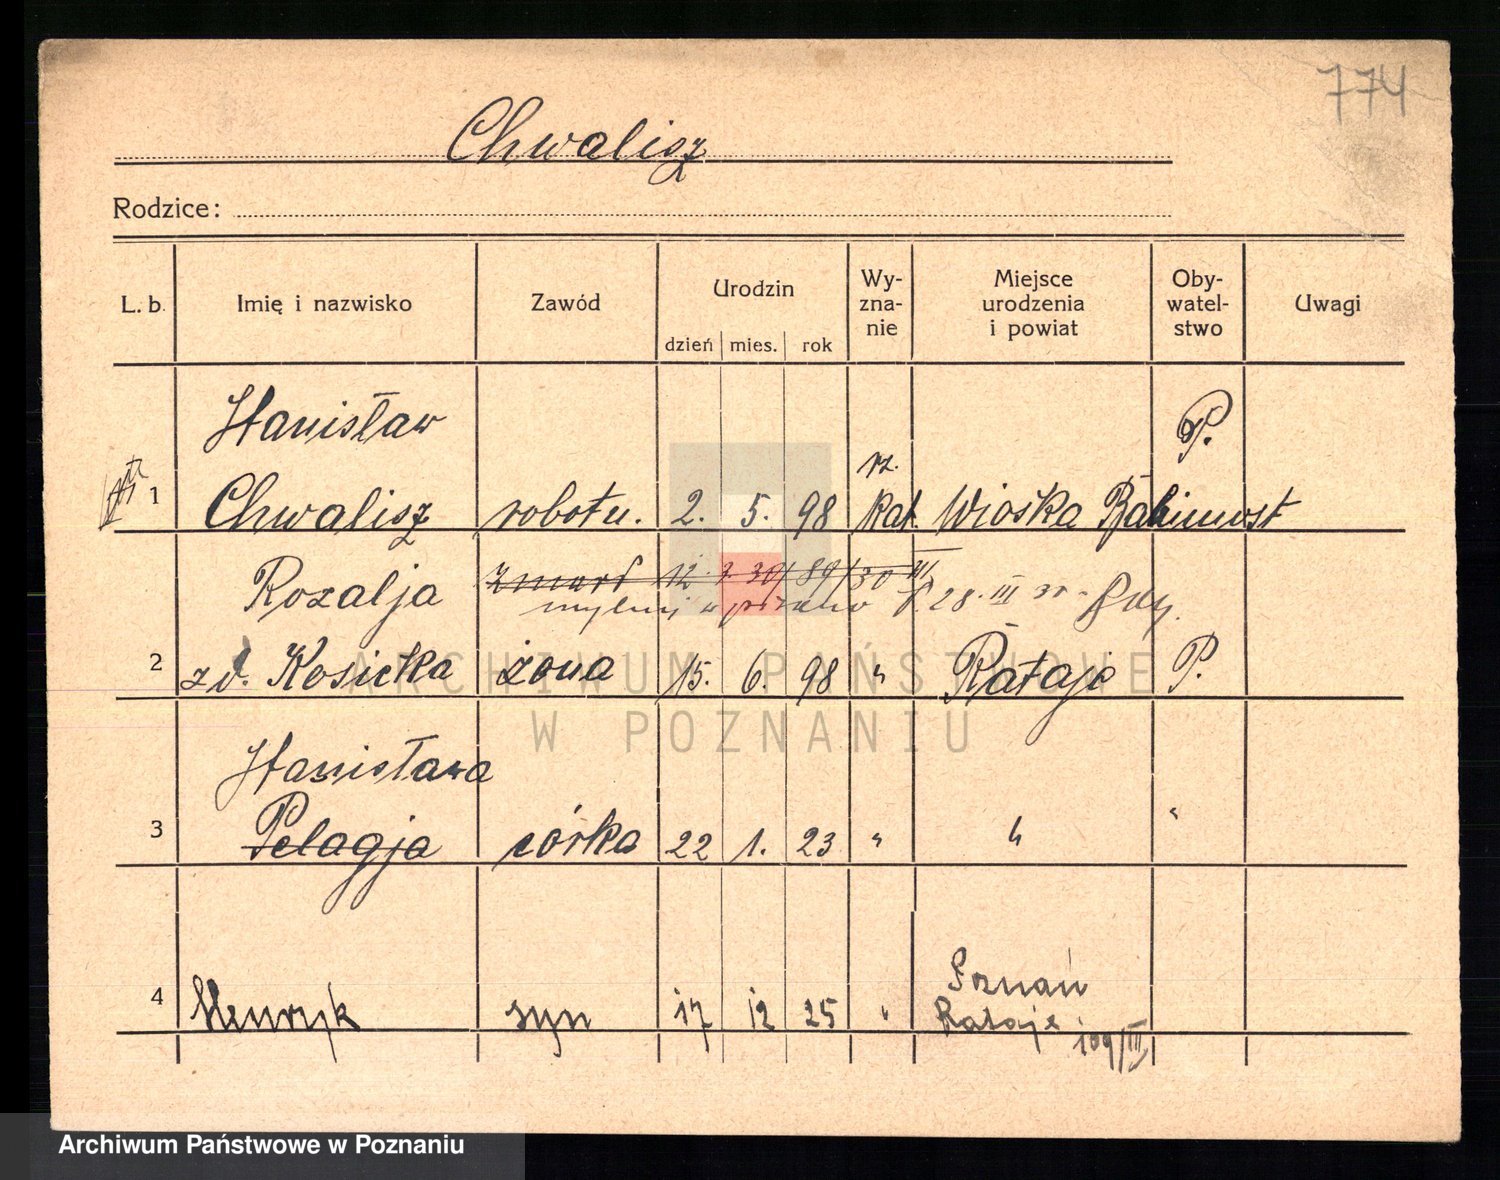 774
Chwalisz
Rodzice:
L. b. Imię i nazwisko Zawód Urodzin dzień mies. rok Wy-zna-nie Miejsce urodzenia i powiat Oby-watel-stwo Uwagi
Stanisław P.
rz.
1 Chwalisz robotn. 2. 5. 98 kat. Wioska Babimost
Rozalja zmarł 12. 30/ 89/30 III
mylnie wpisano 28. III
2 zd. Kosicka żona 15. 6. 98 " Rataje P.
Stanisława
3 Pelagja córka 22 1. 23 " " "
Poznań
4 Henryk syn 17 12 25 " Rataje
109/III
ARCHIWUM PAŃSTWOWE
W POZNANIU
Archiwum Państwowe w Poznaniu